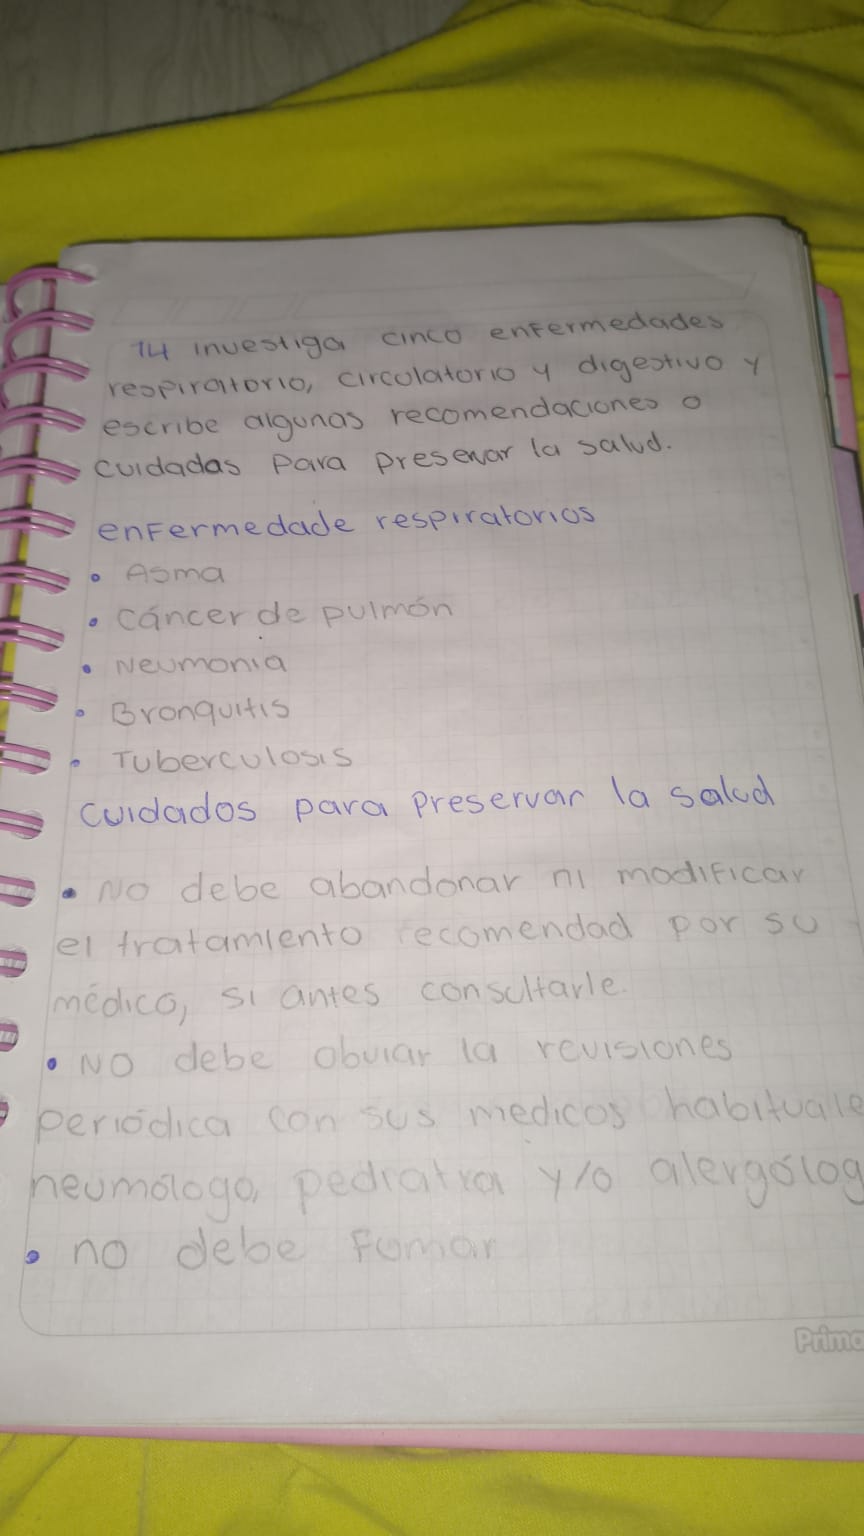 14 investiga cinco enfermedades
respiratorio, circulatorio y digestivo y
escribe algunas recomendaciones o
cuidadas para presevar la salud.
enfermedade respiratorios
• Asma
• Cáncer de pulmón
• Neumonia
• Bronquitis
• Tuberculosis
cuidados para preservar la salud
• No debe abandonar ni modificar
el tratamiento recomendad por su
médico, si antes consultarle.
• No debe obviar la revisiones
periódica con sus medicos habituale
neumólogo, pediatra y/o alergólog
• no debe fumar
Prima